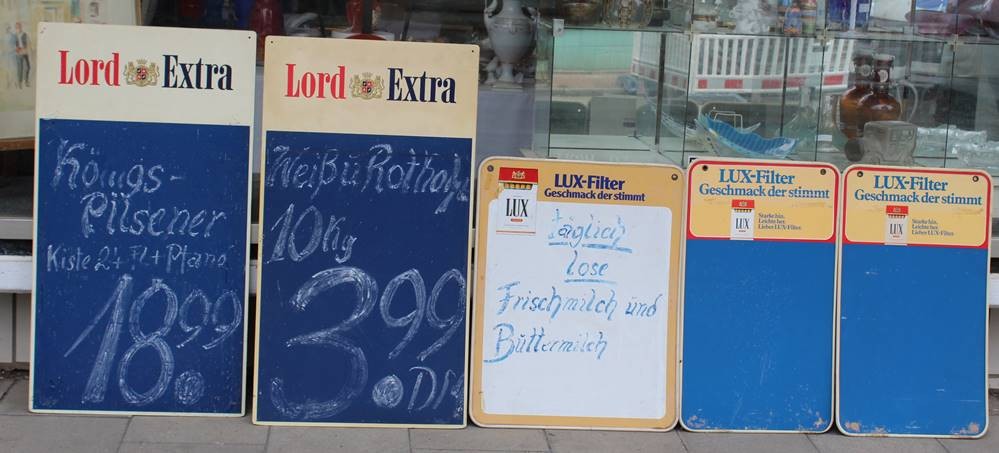 Lord Extra
Königs-
Pilsener
Kiste 24 Fl + Pfand
18.99
Lord Extra
Weiß u Rotkohl
10 Kg
3.99
DM
LUX-Filter
Geschmack der stimmt
LUX
täglich
lose
Frischmilch und
Buttermilch
LUX-Filter
Geschmack der stimmt
LUX
Starke hin,
Leichte her.
Lieber LUX-Filter.
LUX-Filter
Geschmack der stimmt
LUX
Starke hin,
Leichte her.
Lieber LUX-Filter.